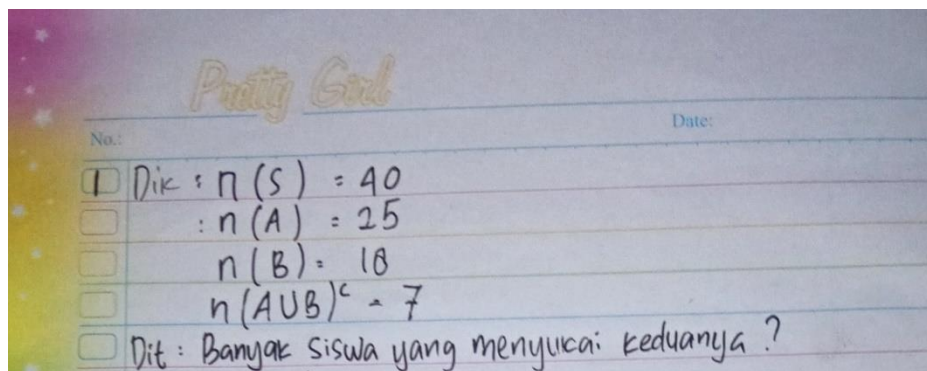 Pretty Girl
No.:
Date:
1 Dik : n (S) = 40
: n (A) = 25
n (B) = 18
n (AUB)ᶜ = 7
Dit : Banyak siswa yang menyukai keduanya ?